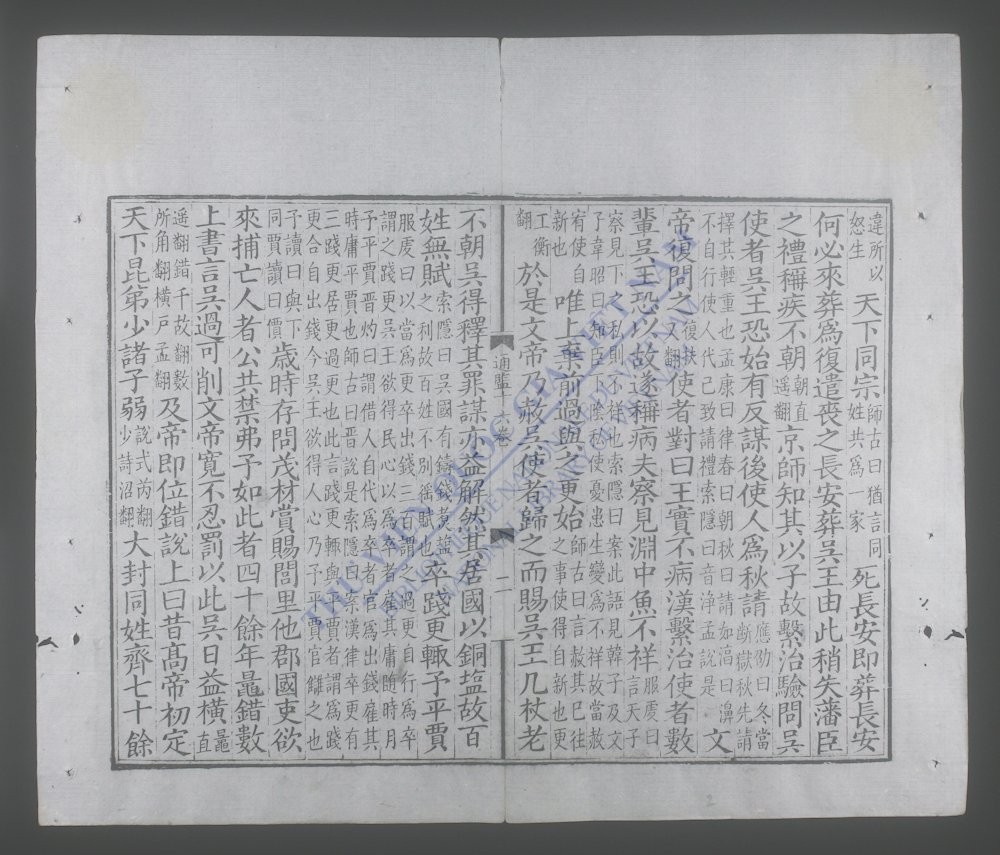 違所以
怒生
天下同宗
師古曰猶言同
姓共爲一家
死長安即葬長安
何必來葬爲復遣喪之長安葬吳王由此稍失藩臣
之禮稱疾不朝
朝直
遥翻
京師知其以子故繫治驗問吳
使者吳王恐始有反謀後使人爲秋請
應劭曰冬當
斷獄秋先請
擇其輕重也孟康曰律春曰朝秋曰請如淳曰濞
不自行使人代己致請禮索隱曰音淨孟說是
文
帝復問之
復扶
又翻
使者對曰王實不病漢繫治使者數
輩吳王恐以故遂稱病夫察見淵中魚不祥
服虔曰
言天子
察見下之私則不祥也索隱曰案此語見韓子及文
子韋昭曰知臣下隂私使憂患生變爲不祥故當赦
宥使自
新也
唯上棄前過與之更始
師古曰言赦其巳往
之事使得自新也更
工衡
翻
於是文帝乃赦吳使者歸之而賜吳王几杖老
通鑑十六卷
二
不朝吳得釋其罪謀亦益解然其居國以銅塩故百
姓無賦
索隱曰吳國有鑄錢煑塩
之利故百姓不別徭賦也
卒踐更輒予平賈
服虔曰以當爲更卒出錢三百謂之過更自行爲卒
謂之踐更吳王欲得民心以爲卒者雇其庸隨時月
予平賈晉灼曰謂借人自代爲卒者官爲出錢雇其
時庸平賈也師古曰晉說是索隱曰案漢律卒更有
三踐更居更過更也此言踐更輒與平賈者謂爲踐
更合自出錢今吳王欲得人心乃予平賈官讎之也
予讀曰與下
同賈讀曰價
歲時存問茂材賞賜閭里他郡國吏欲
來捕亡人者公共禁弗予如此者四十餘年鼂錯數
上書言吳過可削文帝寬不忍罰以此吳日益橫
鼂直
遥翻錯千故翻數
所角翻橫戸孟翻
及帝即位錯說上曰昔高帝初定
天下昆弟少諸子弱
說式芮翻
少詩沼翻
大封同姓齊七十餘